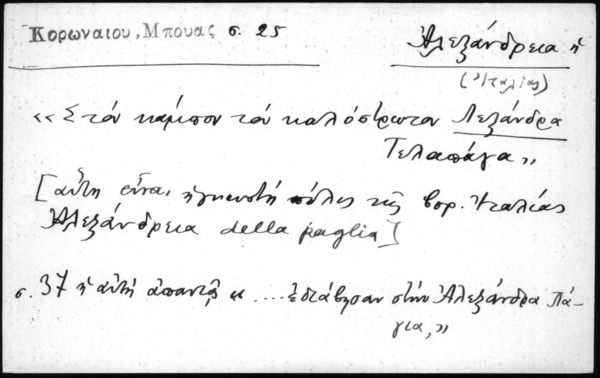 Κορωναιου, Μπουας σ. 25
Ἀλεξάνδρεια ἡ
(Ἰταλίας)
«Στὸν κάμπον τὸν καλόστρωτον Λεξάνδρα
Τελαπάγα»
[αὕτη εἶναι ἡ γνωστὴ πόλις τῆς βορ. Ἰταλίας
Ἀλεξάνδρεια della paglia]
σ. 37 ἡ αὐτὴ ἀπαντᾷ «.... ἐδιάβησαν στὴν Ἀλεξάνδρα Πά-
για,»